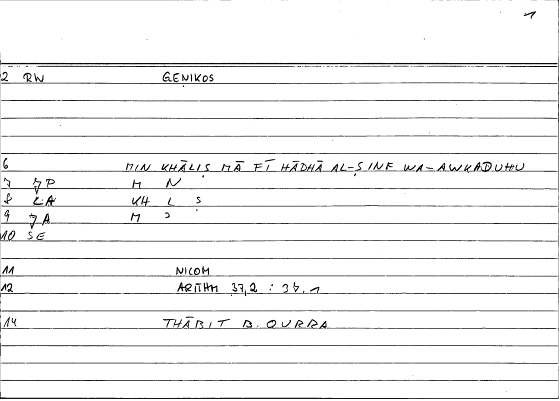 1
2 RW GENIKOS
6 MIN KHĀLIṢ MĀ FĪ HĀDHĀ AL-ṢINF WA-AWKADUHU
7 JP M N
8 LA KH L Ṣ
9 JA M ɔ
10 SE
11 NICOM
12 ARITHM 37,2 :
14 THĀBIT B. QURRA